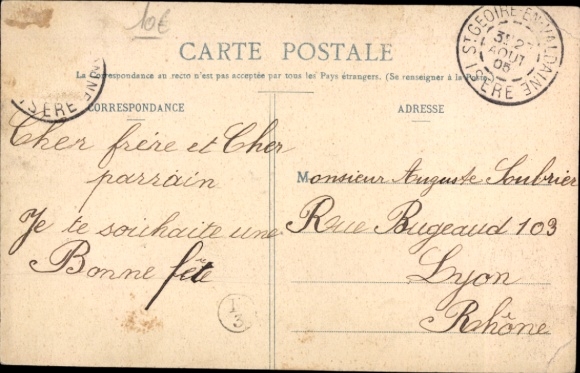 10€
CARTE POSTALE
La Correspondance au recto n'est pas acceptée par tous les Pays étrangers. (Se renseigner à la Poste)
ST GEOIRE-EN-VALDAINE
AOUT
05
ISÈRE
ISÈRE
CORRESPONDANCE
Cher frére et Cher
parrain
Je te souhaite une
Bonne fête
ADRESSE
Monsieur Auguste Soubrier
Rue Bugeaud 103
Lyon
Rhône